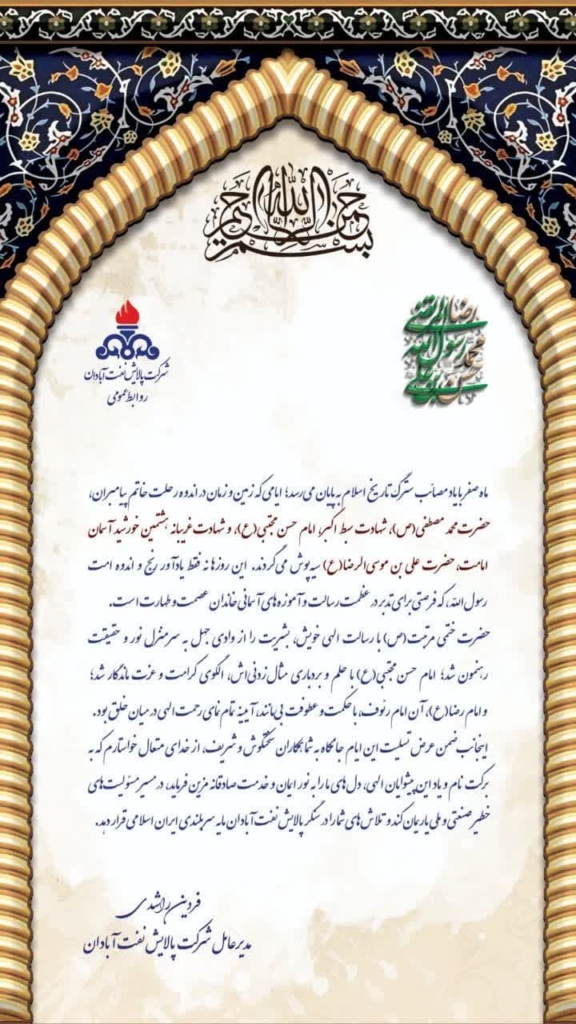 بسم الله الرحمن الرحیم
شرکت پالایش نفت آبادان
روابط عمومی
ماه صفر با یاد مصائب سترگ تاریخ اسلام به پایان می‌رسد؛ ایامی که زمین و زمان در اندوه رحلت خاتم پیامبران،
حضرت محمد مصطفی (ص)، شهادت سبط اکبر، امام حسن مجتبی (ع)، و شهادت غریبانه هشتمین خورشید آسمان
امامت، حضرت علی بن موسی الرضا (ع) سیه‌پوش می‌گردند. این روزها نه فقط یادآور رنج و اندوه امت
رسول الله، که فرصتی برای تدبر در عظمت رسالت و آموزه‌های آسمانی خاندان عصمت و طهارت است.
حضرت ختمی مرتبت (ص) با رسالت الهی خویش، بشریت را از وادی جهل به سرمنزل نور و حقیقت
رهنمون شد؛ امام حسن مجتبی (ع) با حلم و بردباری مثال زدنی‌اش، الگوی کرامت و عزت ماندگار شد؛
و امام رضا (ع)، آن امام رئوف، با حکمت و عطوفت بی‌مانند، آیینه تمام نمای رحمت الهی در میان خلق بود.
اینجانب ضمن عرض تسلیت این ایام جانکاه به شما همکاران سختکوش و شریف، از خدای متعال خواستارم که به
برکت نام و یاد این پیشوایان الهی، دل‌های ما را به نور ایمان و خدمت صادقانه مزین فرماید، در مسیر مسئولیت‌های
خطیر صنعتی و ملی یاریمان کند و تلاش‌های شما را در سنگر پالایش نفت آبادان مایه سربلندی ایران اسلامی قرار دهد.
فردین راشدی
مدیرعامل شرکت پالایش نفت آبادان